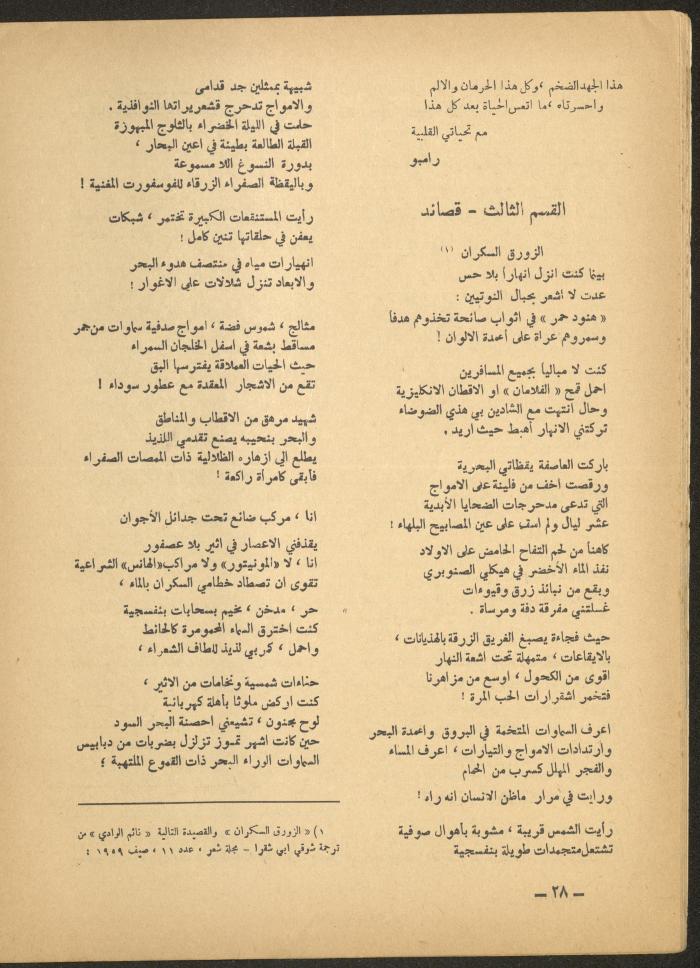 هذا الجهد الضخم ، وكل هذا الحرمان والالم
واحسرتاه ، ما اتعس الحياة بعد كل هذا
مع تحياتي القلبية
رامبو
القسم الثالث - قصائد
الزورق السكران (١)
بينما كنت انزل انهاراً بلا حس
عدت لا أشعر بحبال النوتيين :
« هنود حمر » في اثواب صائحة تخذوهم هدفاً
وسمروهم عراة على اعمدة الالوان !
كنت لا مبالياً بجميع المسافرين
احمل قمح « الفلامان » او الاقطان الانكليزية
وحال انتهت مع الشادين بي هذي الضوضاء
تركتني الانهار اهبط حيث اريد .
باركت العاصفة يقظاتي البحرية
ورقصت اخف من فلينة على الامواج
التي تدعى مدحرجات الضحايا الأبدية
عشر ليال ولم اسف على عين المصابيح البلهاء !
كاهناً من لحم التفاح الحامض على الاولاد
نفذ الماء الأخضر في هيكلي الصنوبري
وبقع من نبائذ زرق وقيوءات
غسلتني مفرقة دفة ومرساة .
حيث فجاءة يصبغ الفريق الزرقة بالهذيانات ،
بالايقاعات ، متمهلة تحت اشعة النهار
اقوى من الكحول ، اوسع من مزاهرنا
فتخمر اشقرارات الحب المرة !
اعرف السماوات المتخمة في البروق واعمدة البحر
وارتدادات الامواج والتيارات ، اعرف المساء
والفجر المهلل كسرب من الحمام
ورايت في مرار ماظن الانسان انه راه !
رأيت الشمس قريبة ، مشوبة بأهوال صوفية
تشتعل متجمدات طويلة بنفسجية
شبيهة بممثلين جد قدامى
والامواج تدحرج قشعريراتها النوافذية .
حلمت في الليلة الخضراء بالثلوج المبهورة
القبلة الطالعة بطيئة في اعين البحار ،
بدورة النسوغ اللا مسموعة
وباليقظة الصفراء الزرقاء للفوسفورت المغنية !
رأيت المستنقعات الكبيرة تختمر ، شبكات
يعفن في حلقاتها تنين كامل !
انهيارات مياه في منتصف هدوء البحر
والابعاد تنزل شلالات على الاغوار !
مثالج ، شموس فضة ، امواج صدفية سماوات من جمر
مساقط بشعة في اسفل الخلجان السمراء
حيث الحيات العملاقة يفترسها البق
تقع من الاشجار المعقدة مع عطور سوداء !
شهيد مرهق من الاقطاب والمناطق
والبحر بنحيبه يصنع تقدمي اللذيذ
يطلع الي ازهاره الظلالية ذات الممصات الصفراء
فأبقى كامرأة راكعة !
انا ، مركب ضائع تحت جدائل الأجوان
يقذفني الاعصار في اثير بلا عصفور
انا ، لا «المونيتور» ولا مراكب «الهانس» الشراعية
تقوى ان تصطاد خطامي السكران بالماء ،
حر ، مدخن ، مخيم بسحابات بنفسجية
كنت اخترق السماء المحمومرة كالحائط
واحمل ، كمربى لذيذ للطاف الشعراء ،
حناءات شمسية ونخامات من الاثير ،
كنت اركض ملوثا بأهلة كهربائية
لوح مجنون ، تشيعني احصنة البحر السود
حين كانت اشهر تموز تزلزل بضربات من دبابيس
السماوات الوراء البحر ذات القموع الملتهبة ؛
١) « الزورق السكران » والقصيدة التالية « نائم الوادي » من
ترجمة شوقي ابي شقرا - مجلة شعر ، عدد ١١ ، صيف ١٩٥٩ :
- ٢٨ -